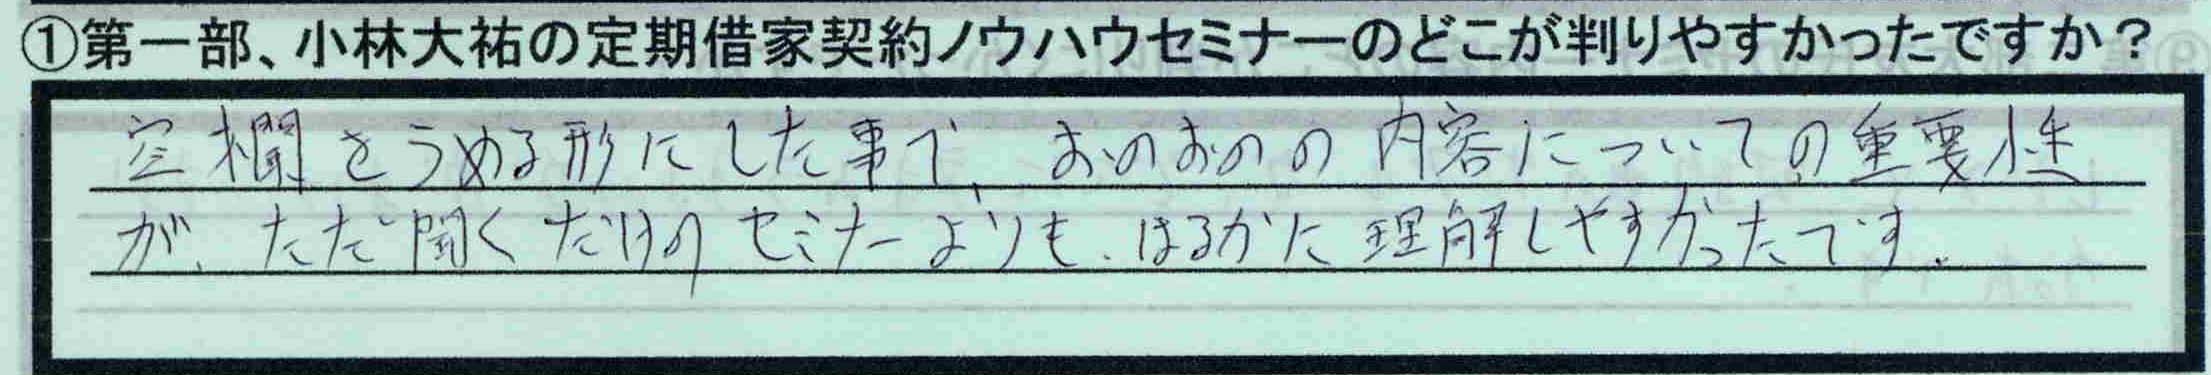 ①第一部、小林大祐の定期借家契約ノウハウセミナーのどこが判りやすかったですか？
空欄をうめる形にした事で、おのおのの内容についての重要性
が、ただ聞くだけのセミナーよりも、はるかに理解しやすかったです。